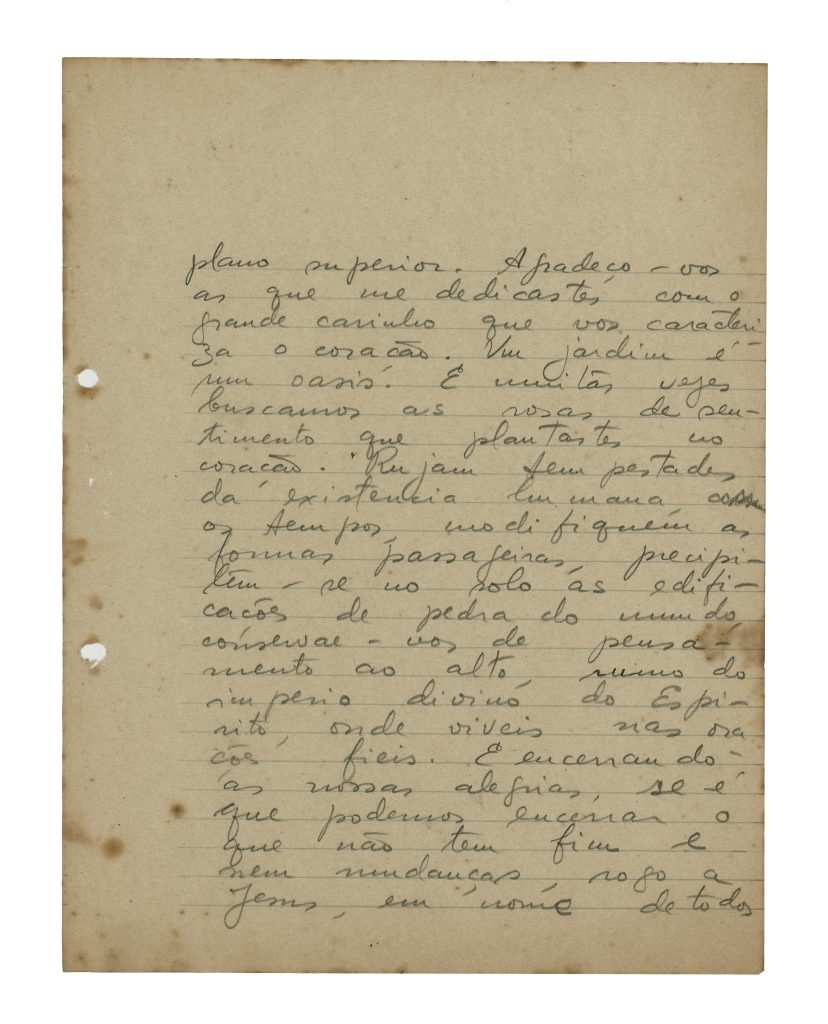 plano superior. Agradeço-vos
as que me dedicastes, com o
grande carinho que vos caracteri
za o coração. Um jardim é
um oasis. E muitas vezes
buscamos as rosas de sen-
timento que plantastes no
coração. Rujam tempestades
da existencia humana
os tempos, modifiquem as
formas passageiras, precipi-
têm-se no solo as edifi-
cações de pedra do mundo,
conservae-vos de pensa-
mento ao alto, rumo do
imperio divino do Espi-
rito, onde viveis nas ora
ções fieis. E encerrando
as nossas alegrias, se é
que podemos encerrar o
que não tem fim e
nem mudanças, rogo a
Jesus, em nome de todos